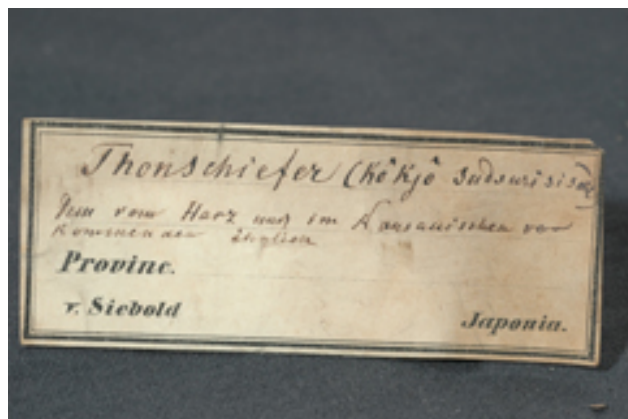 Thonschiefer (Kôkjô
dem vom Harz und im Nassauischen vor
kommenden ähnlich
Provinc.
v. Siebold
Japonia.